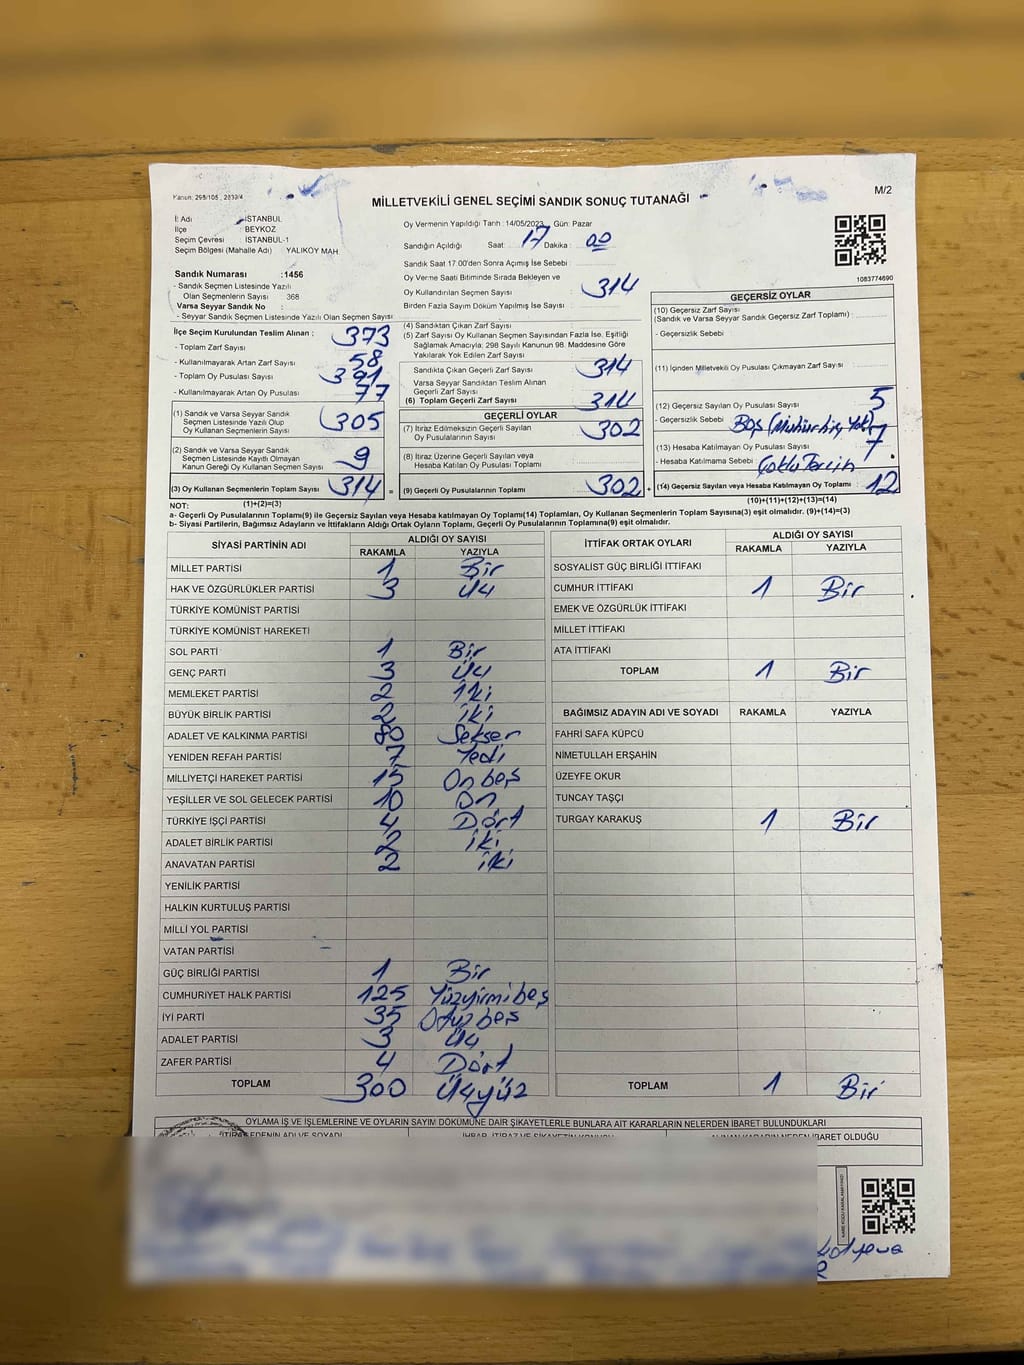 Kanun: 298/105 , 2839/4
MİLLETVEKİLİ GENEL SEÇİMİ SANDIK SONUÇ TUTANAĞI
M/2
İl Adı : İSTANBUL
İlçe : BEYKOZ
Seçim Çevresi : İSTANBUL-1
Seçim Bölgesi (Mahalle Adı) : YALIKÖY MAH.
Sandık Numarası : 1456
- Sandık Seçmen Listesinde Yazılı
Olan Seçmenlerin Sayısı : 368
Varsa Seyyar Sandık No :
- Seyyar Sandık Seçmen Listesinde Yazılı Olan Seçmen Sayısı :
Oy Vermenin Yapıldığı Tarih : 14/05/2023 Gün: Pazar
Sandığın Açıldığı Saat: 17 Dakika : 00
Sandık Saat 17.00'den Sonra Açılmış İse Sebebi :
Oy Verme Saati Bitiminde Sırada Bekleyen ve
Oy Kullandırılan Seçmen Sayısı : 314
Birden Fazla Sayım Döküm Yapılmış İse Sayısı :
1083774690
İlçe Seçim Kurulundan Teslim Alınan :
- Toplam Zarf Sayısı : 373
- Kullanılmayarak Artan Zarf Sayısı : 58
- Toplam Oy Pusulası Sayısı : 391
- Kullanılmayarak Artan Oy Pusulası : 77
(1) Sandık ve Varsa Seyyar Sandık
Seçmen Listesinde Yazılı Olup
Oy Kullanan Seçmenlerin Sayısı : 305
(2) Sandık ve Varsa Seyyar Sandık
Seçmen Listesinde Kayıtlı Olmayan
Kanun Gereği Oy Kullanan Seçmen Sayısı : 9
(3) Oy Kullanan Seçmenlerin Toplam Sayısı : 314 =
(1)+(2)=(3)
(4) Sandıktan Çıkan Zarf Sayısı :
(5) Zarf Sayısı Oy Kullanan Seçmen Sayısından Fazla İse, Eşitliği
Sağlamak Amacıyla; 298 Sayılı Kanunun 98. Maddesine Göre
Yakılarak Yok Edilen Zarf Sayısı :
Sandıkta Çıkan Geçerli Zarf Sayısı : 314
Varsa Seyyar Sandıktan Teslim Alınan
Geçerli Zarf Sayısı :
(6) Toplam Geçerli Zarf Sayısı : 314
GEÇERLİ OYLAR
(7) İtiraz Edilmeksizin Geçerli Sayılan
Oy Pusulalarının Sayısı : 302
(8) İtiraz Üzerine Geçerli Sayılan veya
Hesaba Katılan Oy Pusulası Toplamı :
(9) Geçerli Oy Pusulalarının Toplamı : 302 +
GEÇERSİZ OYLAR
(10) Geçersiz Zarf Sayısı
(Sandık ve Varsa Seyyar Sandık Geçersiz Zarf Toplamı) :
- Geçersizlik Sebebi :
(11) İçinden Milletvekili Oy Pusulası Çıkmayan Zarf Sayısı :
(12) Geçersiz Sayılan Oy Pusulası Sayısı : 5
- Geçersizlik Sebebi : Boş (Mühür hiç yok)
(13) Hesaba Katılmayan Oy Pusulası Sayısı : 7
- Hesaba Katılmama Sebebi : Çoklu Tercih
(14) Geçersiz Sayılan veya Hesaba Katılmayan Oy Toplamı : 12
(10)+(11)+(12)+(13)=(14)
NOT:
a- Geçerli Oy Pusulalarının Toplamı(9) ile Geçersiz Sayılan veya Hesaba katılmayan Oy Toplamı(14) Toplamları, Oy Kullanan Seçmenlerin Toplam Sayısına(3) eşit olmalıdır. (9)+(14)=(3)
b- Siyasi Partilerin, Bağımsız Adayların ve İttifakların Aldığı Ortak Oyların Toplamı, Geçerli Oy Pusulalarının Toplamına(9) eşit olmalıdır.
SİYASİ PARTİNİN ADI ALDIĞI OY SAYISI
RAKAMLA YAZIYLA
MİLLET PARTİSİ 1 Bir
HAK VE ÖZGÜRLÜKLER PARTİSİ 3 Üç
TÜRKİYE KOMÜNİST PARTİSİ
TÜRKİYE KOMÜNİST HAREKETİ
SOL PARTİ 1 Bir
GENÇ PARTİ 3 Üç
MEMLEKET PARTİSİ 2 İki
BÜYÜK BİRLİK PARTİSİ 2 iki
ADALET VE KALKINMA PARTİSİ 80 Seksen
YENİDEN REFAH PARTİSİ 7 Yedi
MİLLİYETÇİ HAREKET PARTİSİ 15 Onbeş
YEŞİLLER VE SOL GELECEK PARTİSİ 10 On
TÜRKİYE İŞÇİ PARTİSİ 4 Dört
ADALET BİRLİK PARTİSİ 2 iki
ANAVATAN PARTİSİ 2 iki
YENİLİK PARTİSİ
HALKIN KURTULUŞ PARTİSİ
MİLLİ YOL PARTİSİ
VATAN PARTİSİ
GÜÇ BİRLİĞİ PARTİSİ 1 Bir
CUMHURİYET HALK PARTİSİ 125 Yüzyirmibeş
İYİ PARTİ 35 Otuzbeş
ADALET PARTİSİ 3 Üç
ZAFER PARTİSİ 4 Dört
TOPLAM 300 Üçyüz
İTTİFAK ORTAK OYLARI ALDIĞI OY SAYISI
RAKAMLA YAZIYLA
SOSYALİST GÜÇ BİRLİĞİ İTTİFAKI
CUMHUR İTTİFAKI 1 Bir
EMEK VE ÖZGÜRLÜK İTTİFAKI
MİLLET İTTİFAKI
ATA İTTİFAKI
TOPLAM 1 Bir
BAĞIMSIZ ADAYIN ADI VE SOYADI RAKAMLA YAZIYLA
FAHRİ SAFA KÜPCÜ
NİMETULLAH ERŞAHİN
ÜZEYFE OKUR
TUNCAY TAŞÇI
TURGAY KARAKUŞ 1 Bir
TOPLAM 1 Bir
OYLAMA İŞ VE İŞLEMLERİNE VE OYLARIN SAYIM DÖKÜMÜNE DAİR ŞİKAYETLERLE BUNLARA AİT KARARLARIN NELERDEN İBARET BULUNDUKLARI
İTİRAZ EDENİN ADI VE SOYADI İHBAR, İTİRAZ VE ŞİKAYETİN KONUSU ALINAN KARARIN NEDEN İBARET OLDUĞU